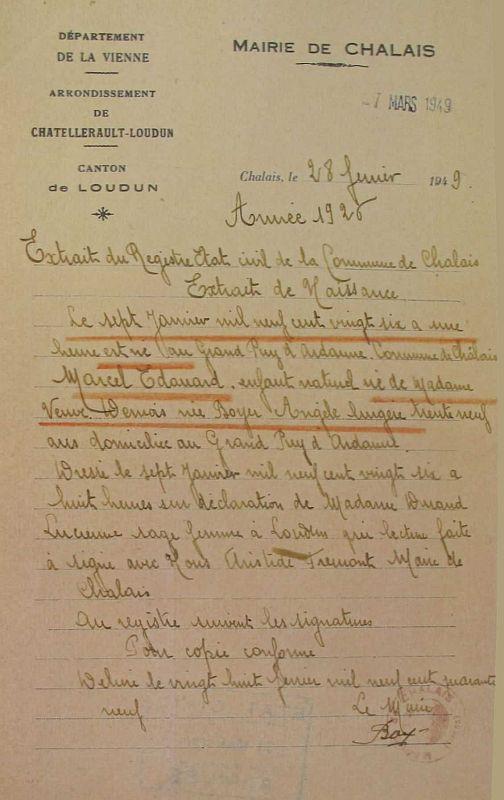 DÉPARTEMENT
DE LA VIENNE
ARRONDISSEMENT
DE
CHATELLERAULT-LOUDUN
CANTON
de LOUDUN
MAIRIE DE CHALAIS
-7 MARS 1949
Chalais, le 28 fevrier 1949.
Année 1926
Extrait du Registre Etat civil de la Commune de Chalais
Extrait de Naissance
Le sept Janvier mil neuf cent vingt six a une
heure est né au Grand Puy d'Ardanne, Commune de Chalais
Marcel Edouard, enfant naturel né de Madame
Veuve Demois née Boyer Angèle lingère trente neuf
ans domiciliée au Grand Puy d'Ardanne.
Dressé le sept Janvier mil neuf cent vingt six a
huit heures sur déclaration de Madame Durand
Lucienne sage femme à Loudun qui lecture faite
à signé avec Nous Aristide Fremont Maire de
Chalais
Au registre suivent les signatures
Pour copie conforme
Délivré le vingt huit fevrier mil neuf cent quarante
neuf
Le Maire
CHALAIS